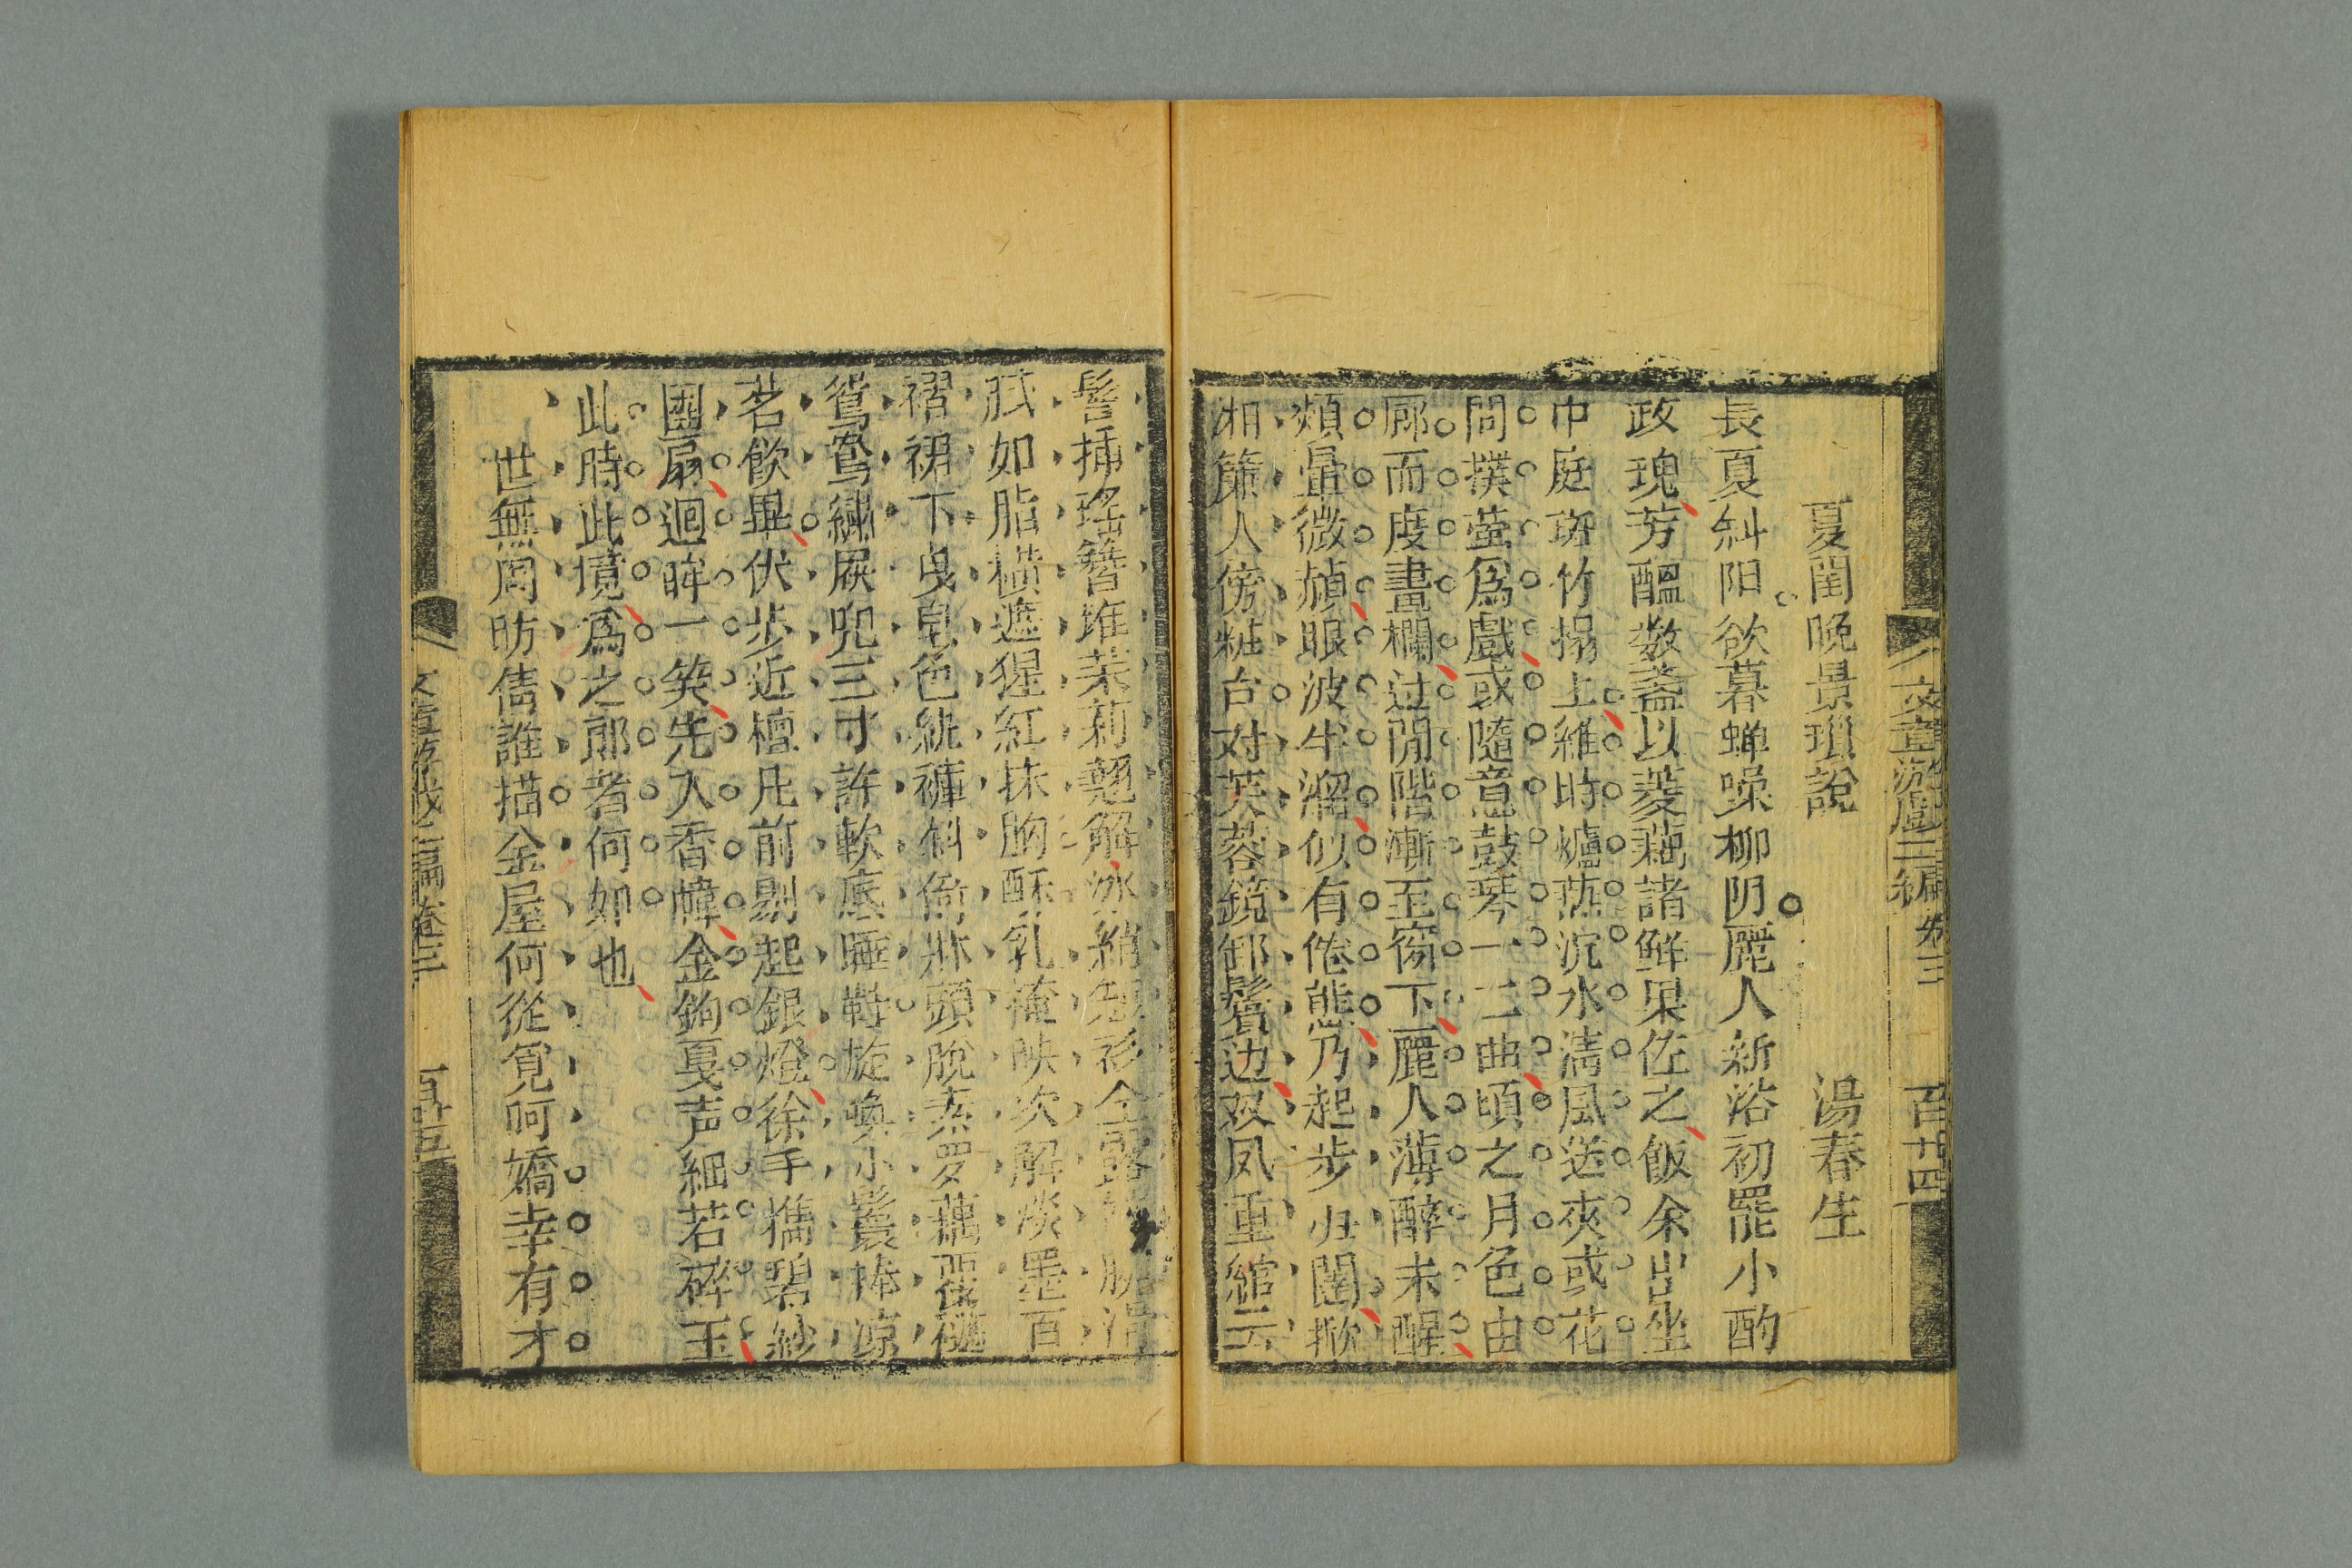 文章游戲二編 卷三 百廿四
夏閨晚景瑣說 湯春生
長夏紏阳欲暮蝉噪柳阴麗人新浴初罷小酌
政瑰芳醞数盞以菱藕諸鮮果佐之飯余出坐
中庭斑竹榻上維時爐爇沉水淸風送爽或花
間撲萤爲戲或隨意鼓琴一二曲頃之月色由
廊而度畫欄过閒階漸至窗下麗人薄醉未醒
頰暈微頳眼波牛溜似有倦態乃起步归閨揿
湘簾人傍粧台对芙蓉鏡卸鬢边双凤重綰云
髻揷瑤簪堆茉莉翹解冰綃衫全露滑
膩如脂橫遮猩紅抹胸酥乳掩映次解淡墨百
褶裙下曳皂色紈褲斜倚牀頭脫素罗藕覆褪
鴛鴦繡屐兜三寸許軟底睡鞋旋喚小鬟捧凉
茗飮畢伏步近檀几前剔起銀燈徐手擕碧紗
團扇迴眸一笑先入香幃金鉤戛声細若碎玉
此時此境爲之郞者何如也
世無周昉儁誰描金屋何從覓呵嬌幸有才
文章游戲二編 卷三 百廿五